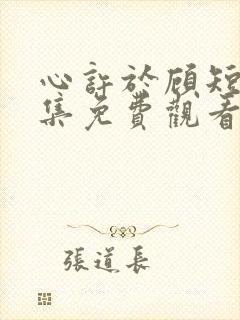 心許於顧短
集免費觀看
張道長